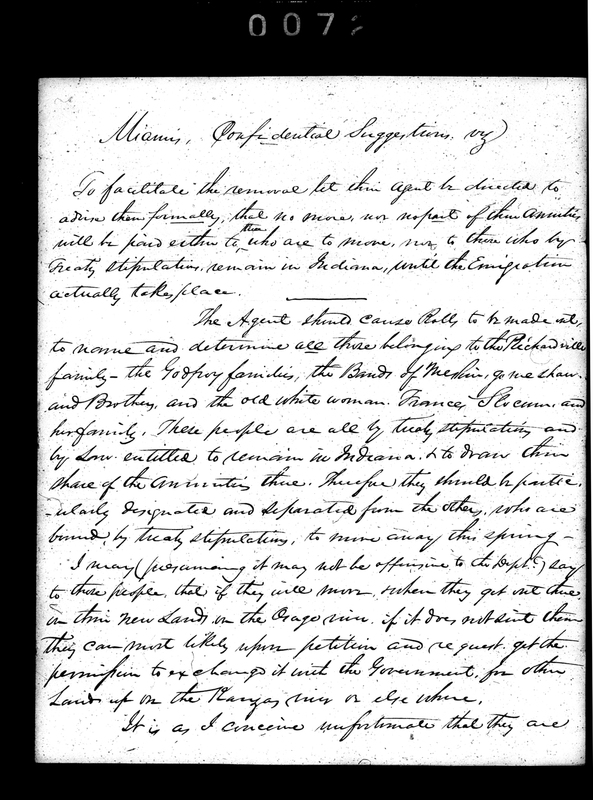 007
Miamis, Confidential Suggestions. viz
To facilitate the removal let their Agent be directed to
advise them formally, that no more, nor no part of their Annuities
will be paid either to
those
who are to move, nor to those who by
Treaty stipulations, remain in Indiana, until the Emigration
actually takes place.
The Agent should cause Rolls to be made out,
to name and determine all those belonging to the Richardville
family - the Godfroy families, the Bands of Meshin,go,me,shaw.
and Brothers, and the old white woman. Frances Slocum, and
her family. These people are all by treaty stipulations and
by Law entitled to remain in Indiana. & to draw their
share of the Annuities there. Therefore they should be partic-
-ularly designated and separated from the others, who are
bound, by treaty stipulations, to move away this spring -
I may (presuming it may not be offensive to the Dept.) say
to those people, that if they will move, & when they get out there
on their new Lands on the Osage river. if it does not suit them
they can most likely upon petition and request, get the
permission to exchange it with the Government, for other
Lands up on the Kanzas river or else where.
It is as I conceive unfortunate that they are